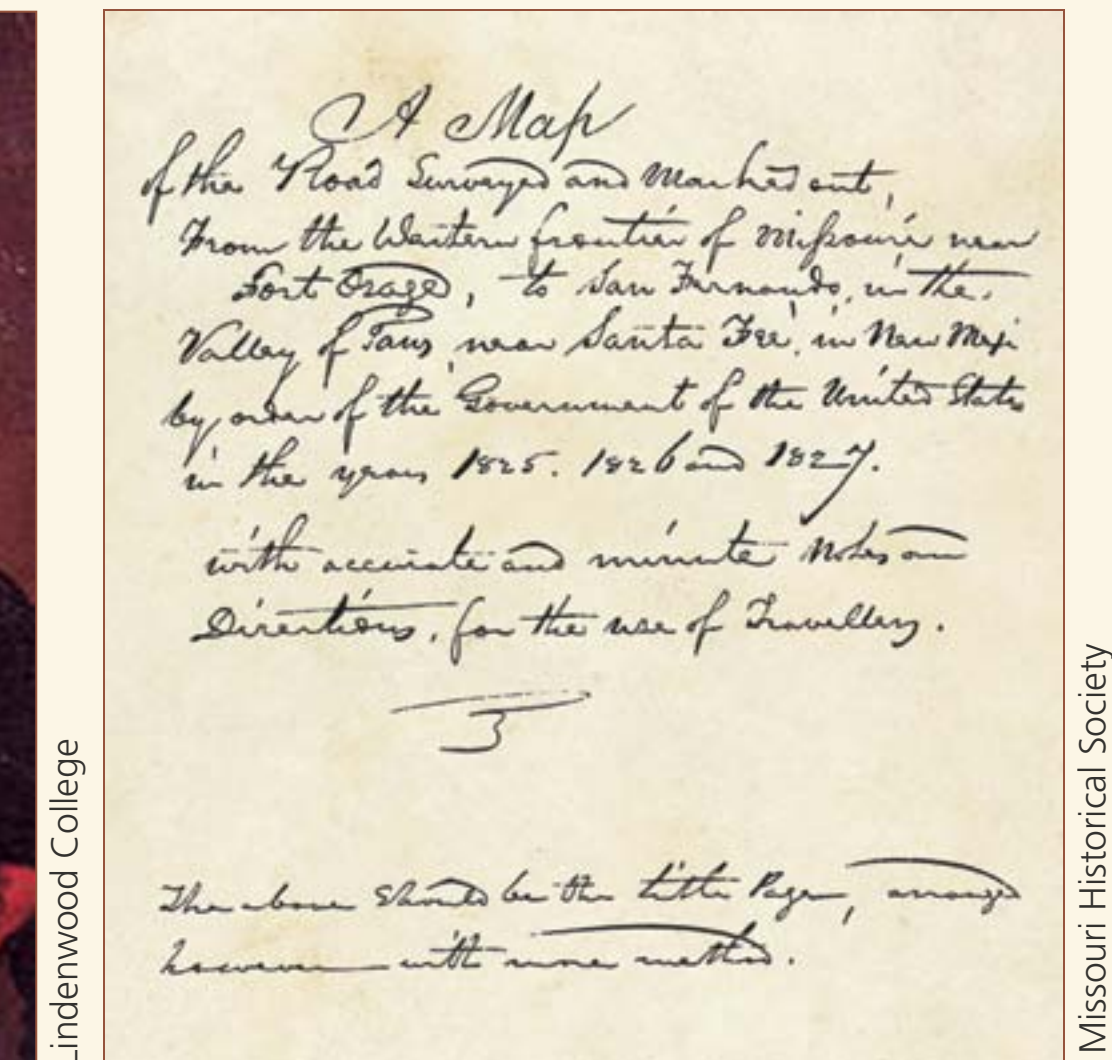 A Map
of the Road Surveyed and Marked out,
From the Western frontier of Missouri near
Fort Osage, to San Fernando, in the
Valley of Taus near Santa Fee, in New Mexi
by order of the Government of the United States
in the years 1825. 1826 and 1827.
with accurate and minute Notes and
Directions, for the use of Travellers.
The above Should be the title Page, arranged
however with more method.
Lindenwood College
Missouri Historical Society